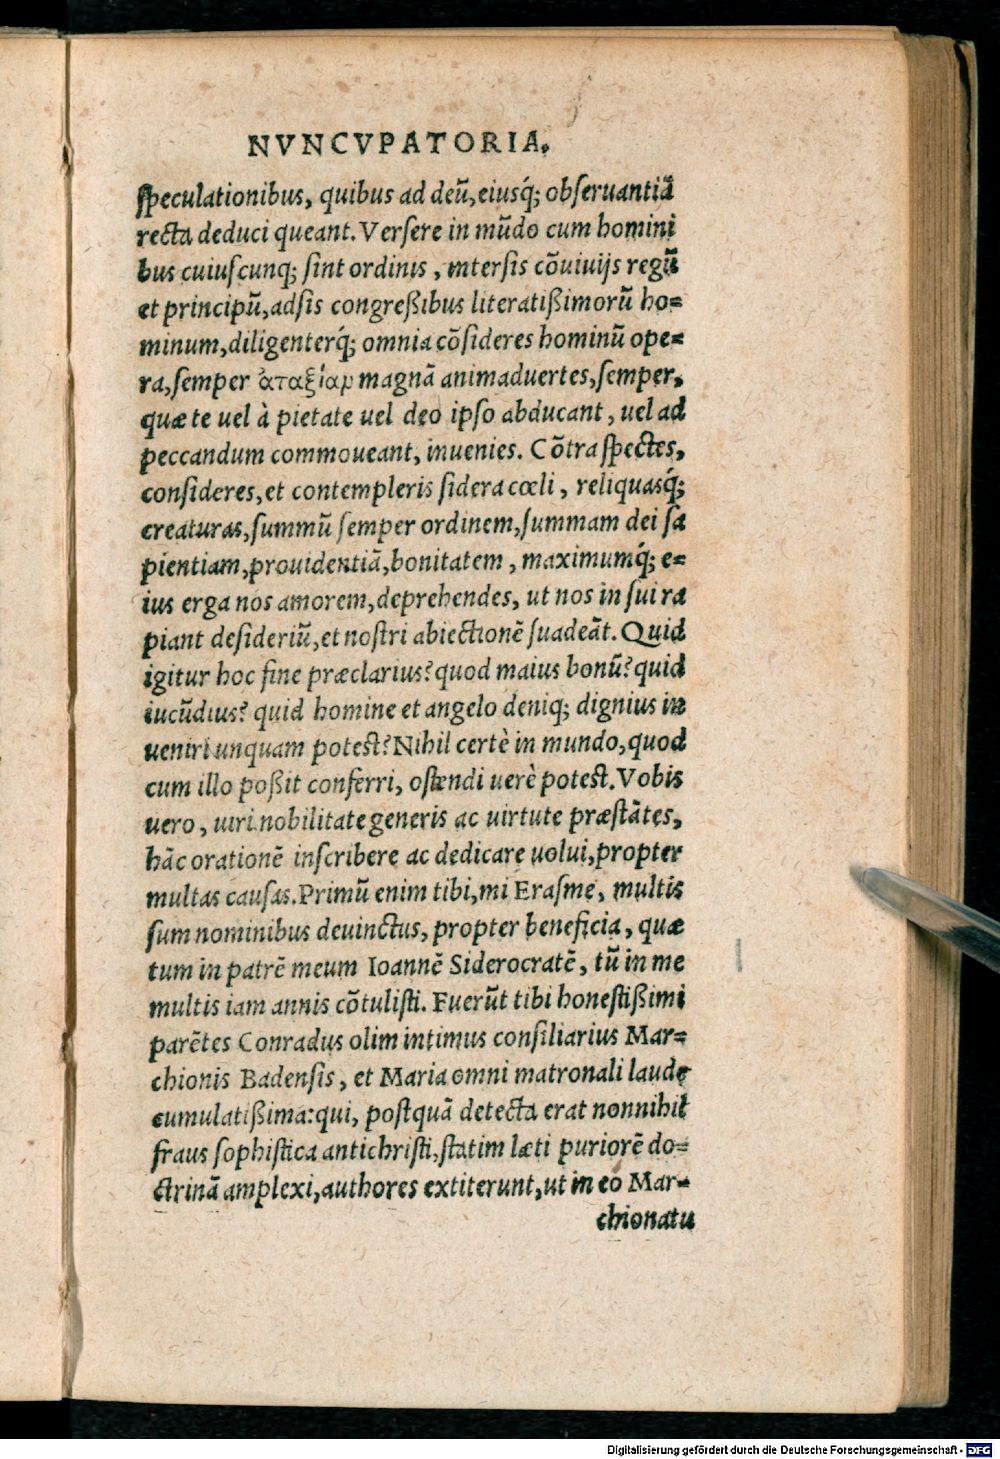 NVNCVPATORIA.
ſpeculationibus, quibus ad deũ, eiusq́; obſeruantiã
recta deduci queant. Verſere in mũdo cum homini
bus cuiuſcunq; ſint ordinis, interſis cõuiuijs regũ
et principũ, adſis congreßibus literatißimorũ ho=
minum, diligenterq́; omnia cõſideres hominũ ope=
ra, ſemper ἀταξίαμ magnã animaduertes, ſemper,
quæ te uel à pietate uel deo ipſo abducant, uel ad
peccandum commoueant, inuenies. Cõtra ſpectes,
conſideres, et contempleris ſidera cœli, reliquasq́;
creaturas, ſummũ ſemper ordinem, ſummam dei ſa
pientiam, prouidentiã, bonitatem, maximumq́; e=
ius erga nos amorem, deprehendes, ut nos in ſui ra
piant deſideriũ, et noſtri abiectionẽ ſuadeãt. Quid
igitur hoc fine præclarius? quod maius bonũ? quid
iucũdius? quid homine et angelo deniq; dignius in
ueniri unquam poteſt? Nihil certè in mundo, quod
cum illo poßit conferri, oſtendi uerè poteſt. Vobis
uero, uiri nobilitate generis ac uirtute præſtãtes,
hãc orationẽ inſcribere ac dedicare uolui, propter
multas cauſas. Primũ enim tibi, mi Eraſme, multis
ſum nominibus deuinctus, propter beneficia, quæ
tum in patrẽ meum Ioannẽ Siderocratẽ, tũ in me
multis iam annis cõtuliſti. Fuerũt tibi honeſtißimi
parẽtes Conradus olim intimus conſiliarius Mar=
chionis Badenſis, et Maria omni matronali laude
cumulatißima: qui, poſtquã detecta erat nonnihil
fraus ſophiſtica antichriſti, ſtatim læti puriorẽ do=
ctrinã amplexi, authores extiterunt, ut in eo Mar=
chionatu
Digitalisierung gefördert durch die Deutsche Forschungsgemeinschaft - DFG